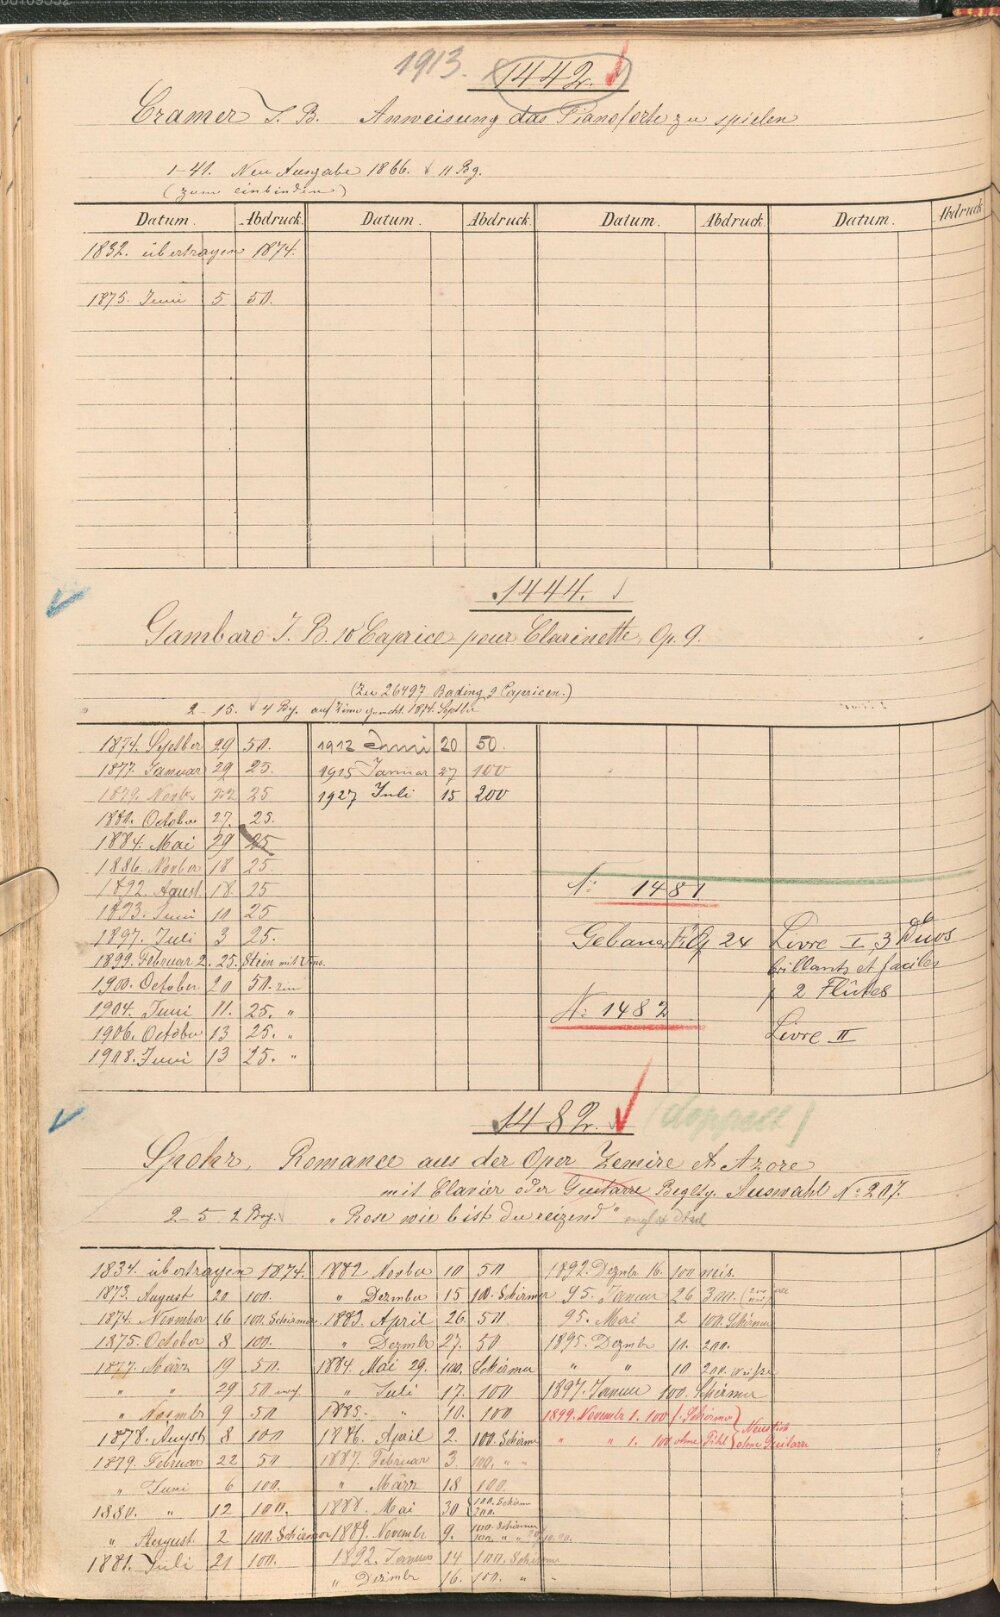 1913. 1442.
Cramer J. B. Anweisung das Pianoforte zu spielen
1-41. Neu Ausgabe 1866. 11 Bg.
(zum einbinden)
Datum. Abdruck. Datum. Abdruck. Datum. Abdruck. Datum. Abdruck
1832. übertragen 1874.
1875. Juni 5 50.
1444.
Gambaro J. B. 10 Caprice pour Clarinette, Op. 9.
(Zu 26497 Bading 9 Capricen.)
2-15. 4 Bg. auf Zinn gemacht. 1874. Septbr
1874. Septber 29 50. 1912 Juni 20 50.
1877. Januar 29 25. 1915 Januar 27 100
1879. Novbr 22 25 1927 Juli 15 200
1881. October 27. 25.
1884. Mai 29 25
1886. Novber 18 25
1892. August 18. 25
1893. Juni 10 25
1897. Juli 3 25.
1899. Februar 2. 25. Stein
1900. October 20 50.
1904. Juni 11. 25. "
1906. October 13 25. "
1908. Juni 13 25. "
N: 1481
Gebauer Op 24 Livre I, 3 Duos
brillants et faciles
p 2 Flûtes
N: 1482
Livre II
1482. (doppelt)
Spohr, Romance aus der Oper Zemire et Azore
mit Clavier oder Guitarre Begltg. Auswahl No 207.
2-5 2 Bog. "Rose wie bist du reizend"
1834. übertragen 1874. 1882 Novber 10 50 1892. Dezmbr 16. 100
1873. August 20 100. " Dezmber 15 100. Schirmer 95. Januar 26 300.
1874. November 16 100. Schirmer 1883. April 26. 50 95. Mai 2 100. Schirmer
1875. October 8 100. " Dezmbr 27. 50 1895. Dezmbr 10. 200.
1877. März 19 50. 1884. Mai 29. 100. Schirmer " " 10 200.
" " 29 50 " Juli 17. 100 1897. Januar 100. Schirmer
" Novmbr 9 50 1885. " 10. 100 1899. Novembr 1. 100 (Schirmer)
1878. August 8 100 1886. April 2. 100. Schirmer " " 1. 100 ohne Titel ohne Guitarre
1879. Februar 22 50 1887. Februar 3 100. " "
" Juni 6 100. " März 18 100.
1880. " 12 100. 1888. Mai 30 100. Schirm 200.
" August 2 100. Schirmer 1889. Novembr 9. 100. Schirmer
1881. Juli 21 100. 1892. Januar 14 100. Schirmer
" Dezmbr 16. 100. "